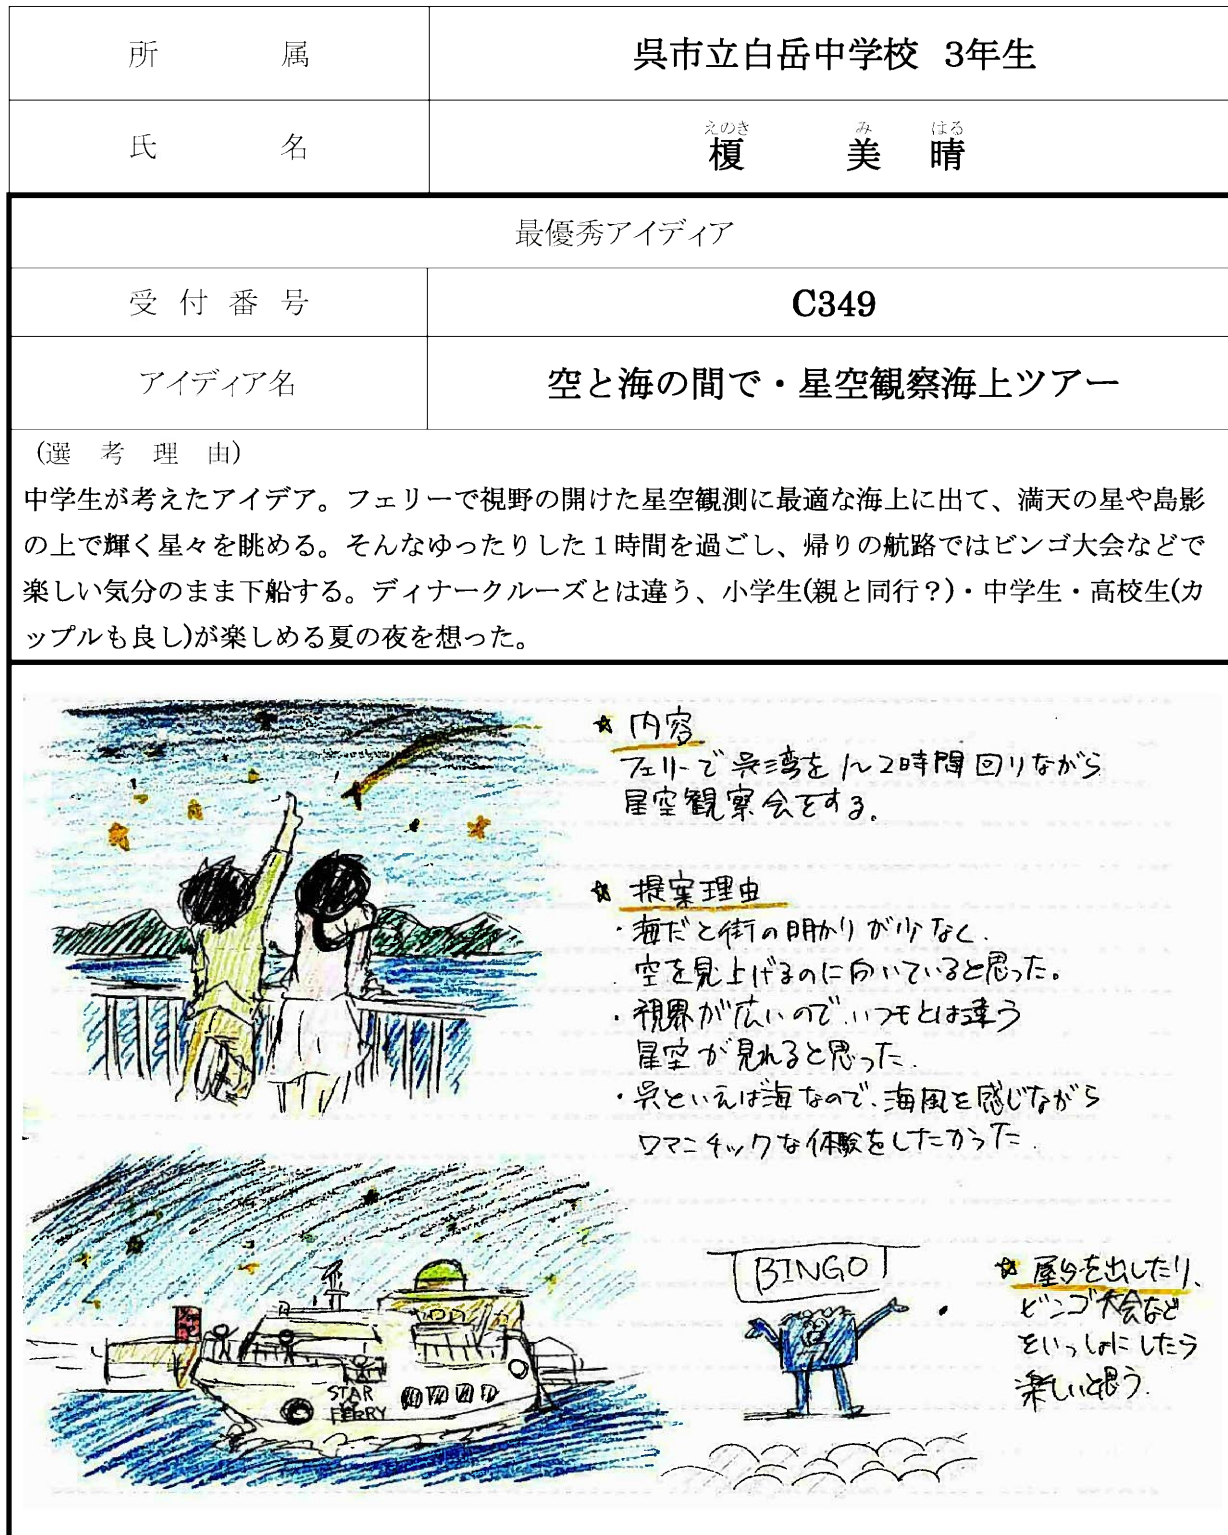 所属 呉市立白岳中学校 3年生
えのき み はる
氏名 榎 美 晴
最優秀アイディア
受付番号 C349
アイディア名 空と海の間で・星空観察海上ツアー
(選考理由)
中学生が考えたアイデア。フェリーで視野の開けた星空観測に最適な海上に出て、満天の星や島影
の上で輝く星々を眺める。そんなゆったりした1時間を過ごし、帰りの航路ではビンゴ大会などで
楽しい気分のまま下船する。ディナークルーズとは違う、小学生(親と同行？)・中学生・高校生(カ
ップルも良し)が楽しめる夏の夜を想った。
☆ 内容
フェリーで呉湾を1〜2時間回りながら
星空観察会をする。
☆ 提案理由
・海だと街の明かりが少なく、
空を見上げるのに向いていると思った。
・視界が広いので、いつもとは違う
星空が見れると思った。
・呉といえば海なので、海風を感じながら
ロマンチックな体験をしたかった。
STAR
FERRY
BINGO
☆ 屋台を出したり、
ビンゴ大会など
といっしょにしたら
楽しいと思う。